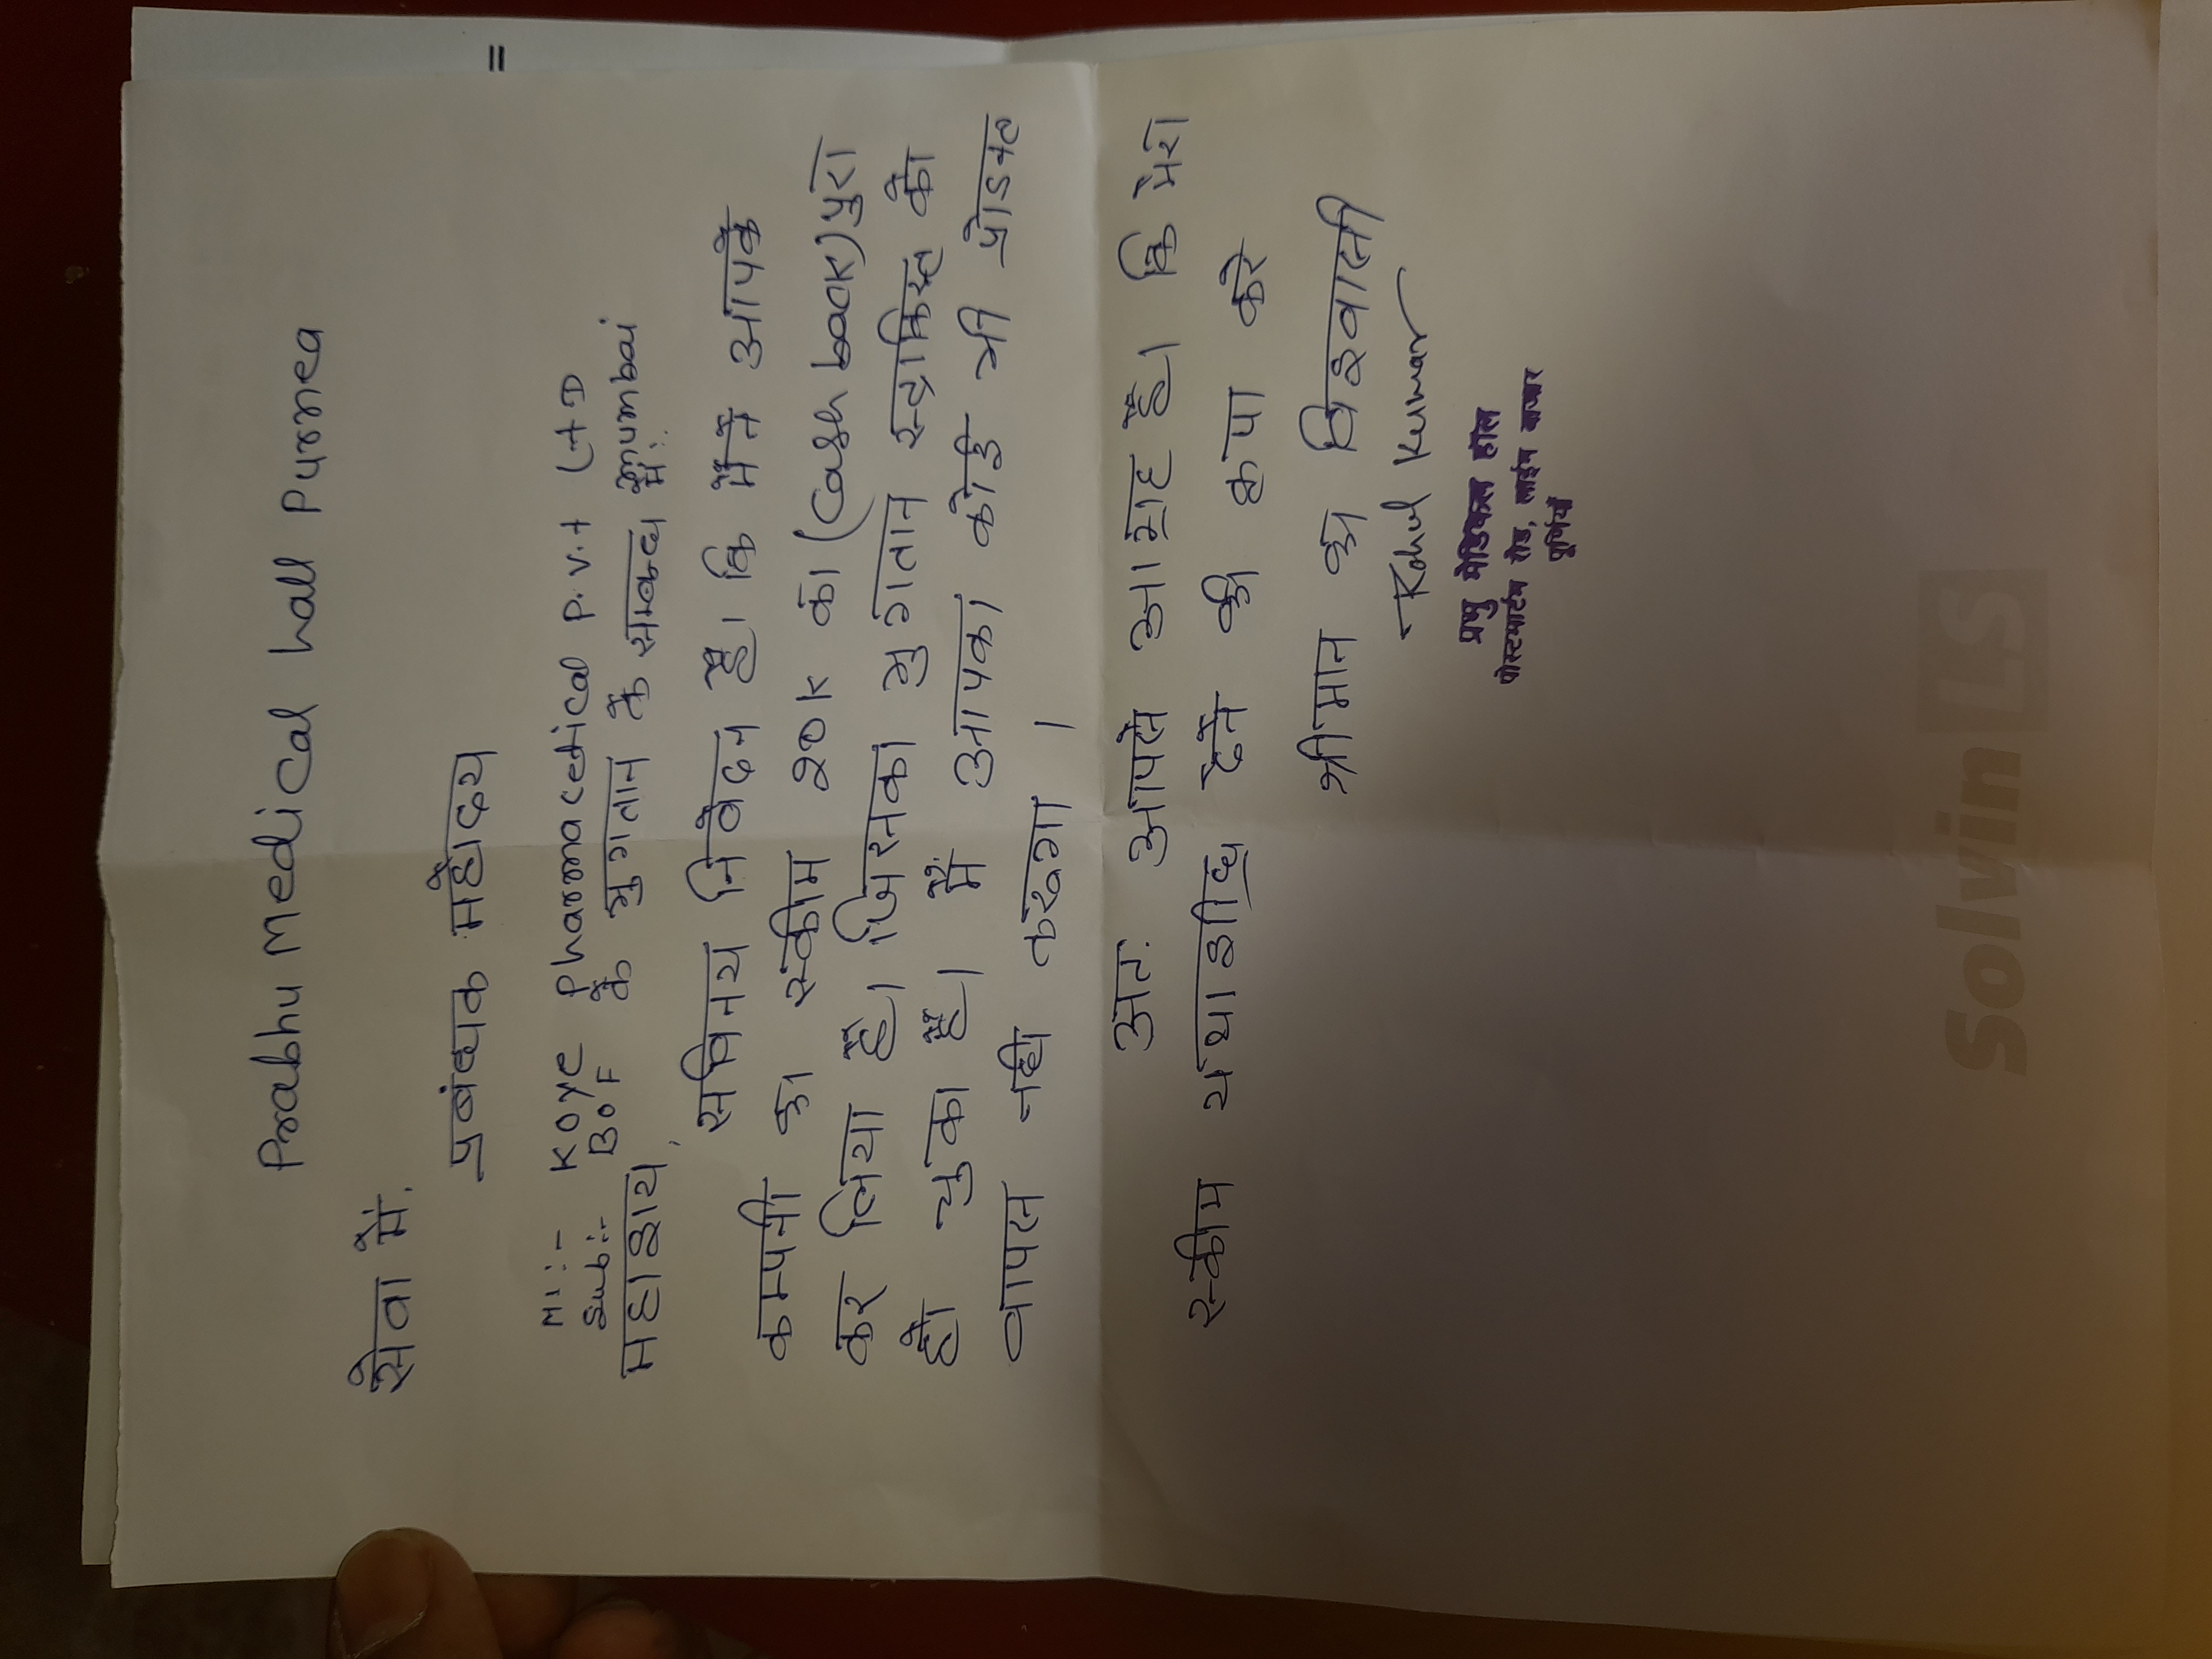 Prabhu Medical hall Purnea
सेवा में.
प्रबंधक महोदय
M:- Koye Pharmacetical P.v.t LtD Mumbai
Sub:- BoF के भुगतान के सम्बन्ध में:
महाशय,
सविनय निवेदन है। कि मैंने आपके
कम्पनी का स्कीम 20K का (Cash back) पुरा
कर लिया हैं। जिसका भुगतान स्टॉकिस्ट को
हो चुका हैं। मैं आपका कोई भी प्रोडक्ट
वापस नही करूगा ।
अतः आपसे आग्रह हैं। कि मेरा
स्कीम यथाशीघ्र देने की कृपा करे
श्रीमान का विश्वासी
Rahul Kumar
प्रभु मेडिकल हॉल
पोस्टमार्टम रोड, लाईन बाजार
पूर्णियाँ
Solwin LS